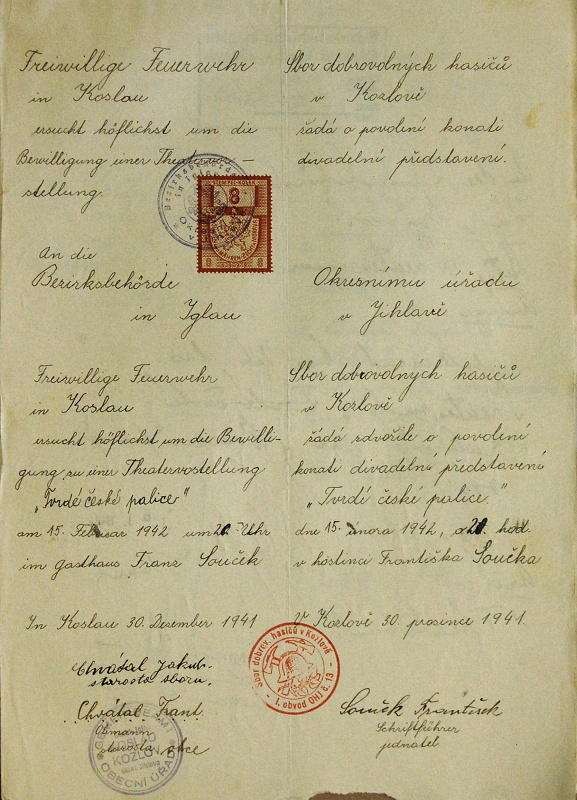 Freiwillige Feuerwehr
in Koslau
ersucht höflichst um die
Bewilligung einer Theatervor-
stellung.
An die
Bezirksbehörde
in Iglau
Freiwillige Feuerwehr
in Koslau
ersucht höflichst um die Bewilli-
gung zu einer Theatervostellung
„Tvrdé české palice"
am 15. Februar 1942 um 20 Uhr
im gasthaus Franz Souček
In Koslau 30. Dezember 1941
Chvátal Jakub
starosta sboru.
Chvátal Frant.
Obmann
starosta obce
Sbor dobrovolných hasičů
v Kozlově
řádá o povolení konati
divadelní předstarení.
Okresnímu úřadu
v Jihlavě
Sbor dobrovolných hasičů
v Kozlově
řádá zdvořile o povolení
konati divadelní představení
„Tvrdí české palice."
dne 15. února 1942, o 20. hod.
v hostinci Františka Součka
V Kozlově 30. prosince 1941.
Souček František
Schriftführer
jednatel
STEMPEL-KOLEK
8
8 8
Sbor dobrov. hasičů v Kozlově
- I. obvod OHJ č. 13 -
GEMEINDEAMT
KOSLAU
KOZLOV
OBECNÍ ÚŘAD